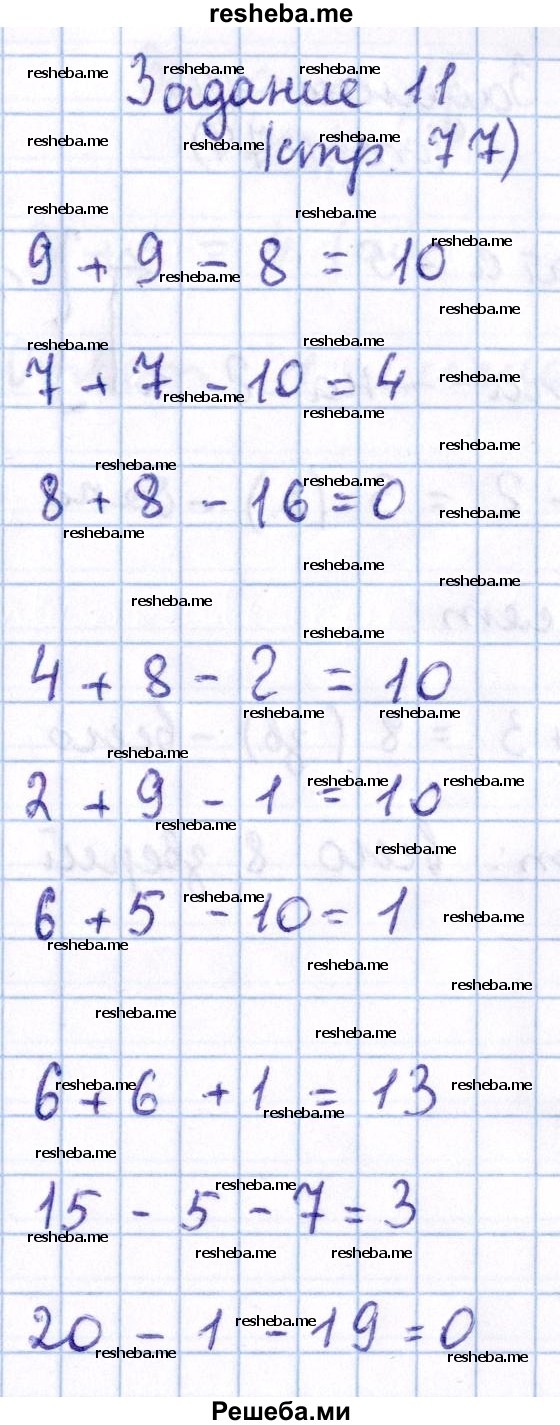 resheba.me
Задание 11
(стр. 77)
9 + 9 - 8 = 10
7 + 7 - 10 = 4
8 + 8 - 16 = 0
4 + 8 - 2 = 10
2 + 9 - 1 = 10
6 + 5 - 10 = 1
6 + 6 + 1 = 13
15 - 5 - 7 = 3
20 - 1 - 19 = 0
Решеба.ми